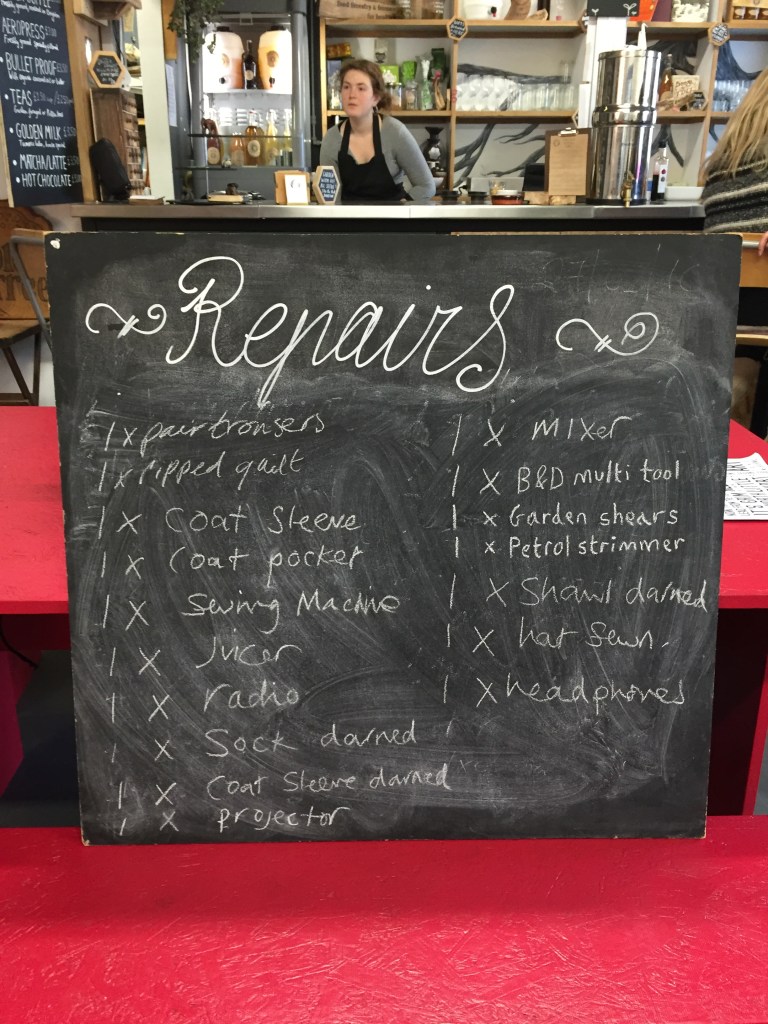 AEROPRESS
BULLET PROOF
TEAS
GOLDEN MILK
MATCHA LATTE
HOT CHOCOLATE
Repairs
1 x pair trousers
1 x ripped quilt
1 x Coat Sleeve
1 x Coat pocket
1 x Sewing Machine
1 x Juicer
1 x radio
1 x Sock darned
1 x Coat Sleeve darned
1 x projector
1 x MIXer
1 x B&D multi tool
1 x Garden shears
1 x Petrol strimmer
1 x Shawl darned
1 x hat Sewn.
1 x headphones